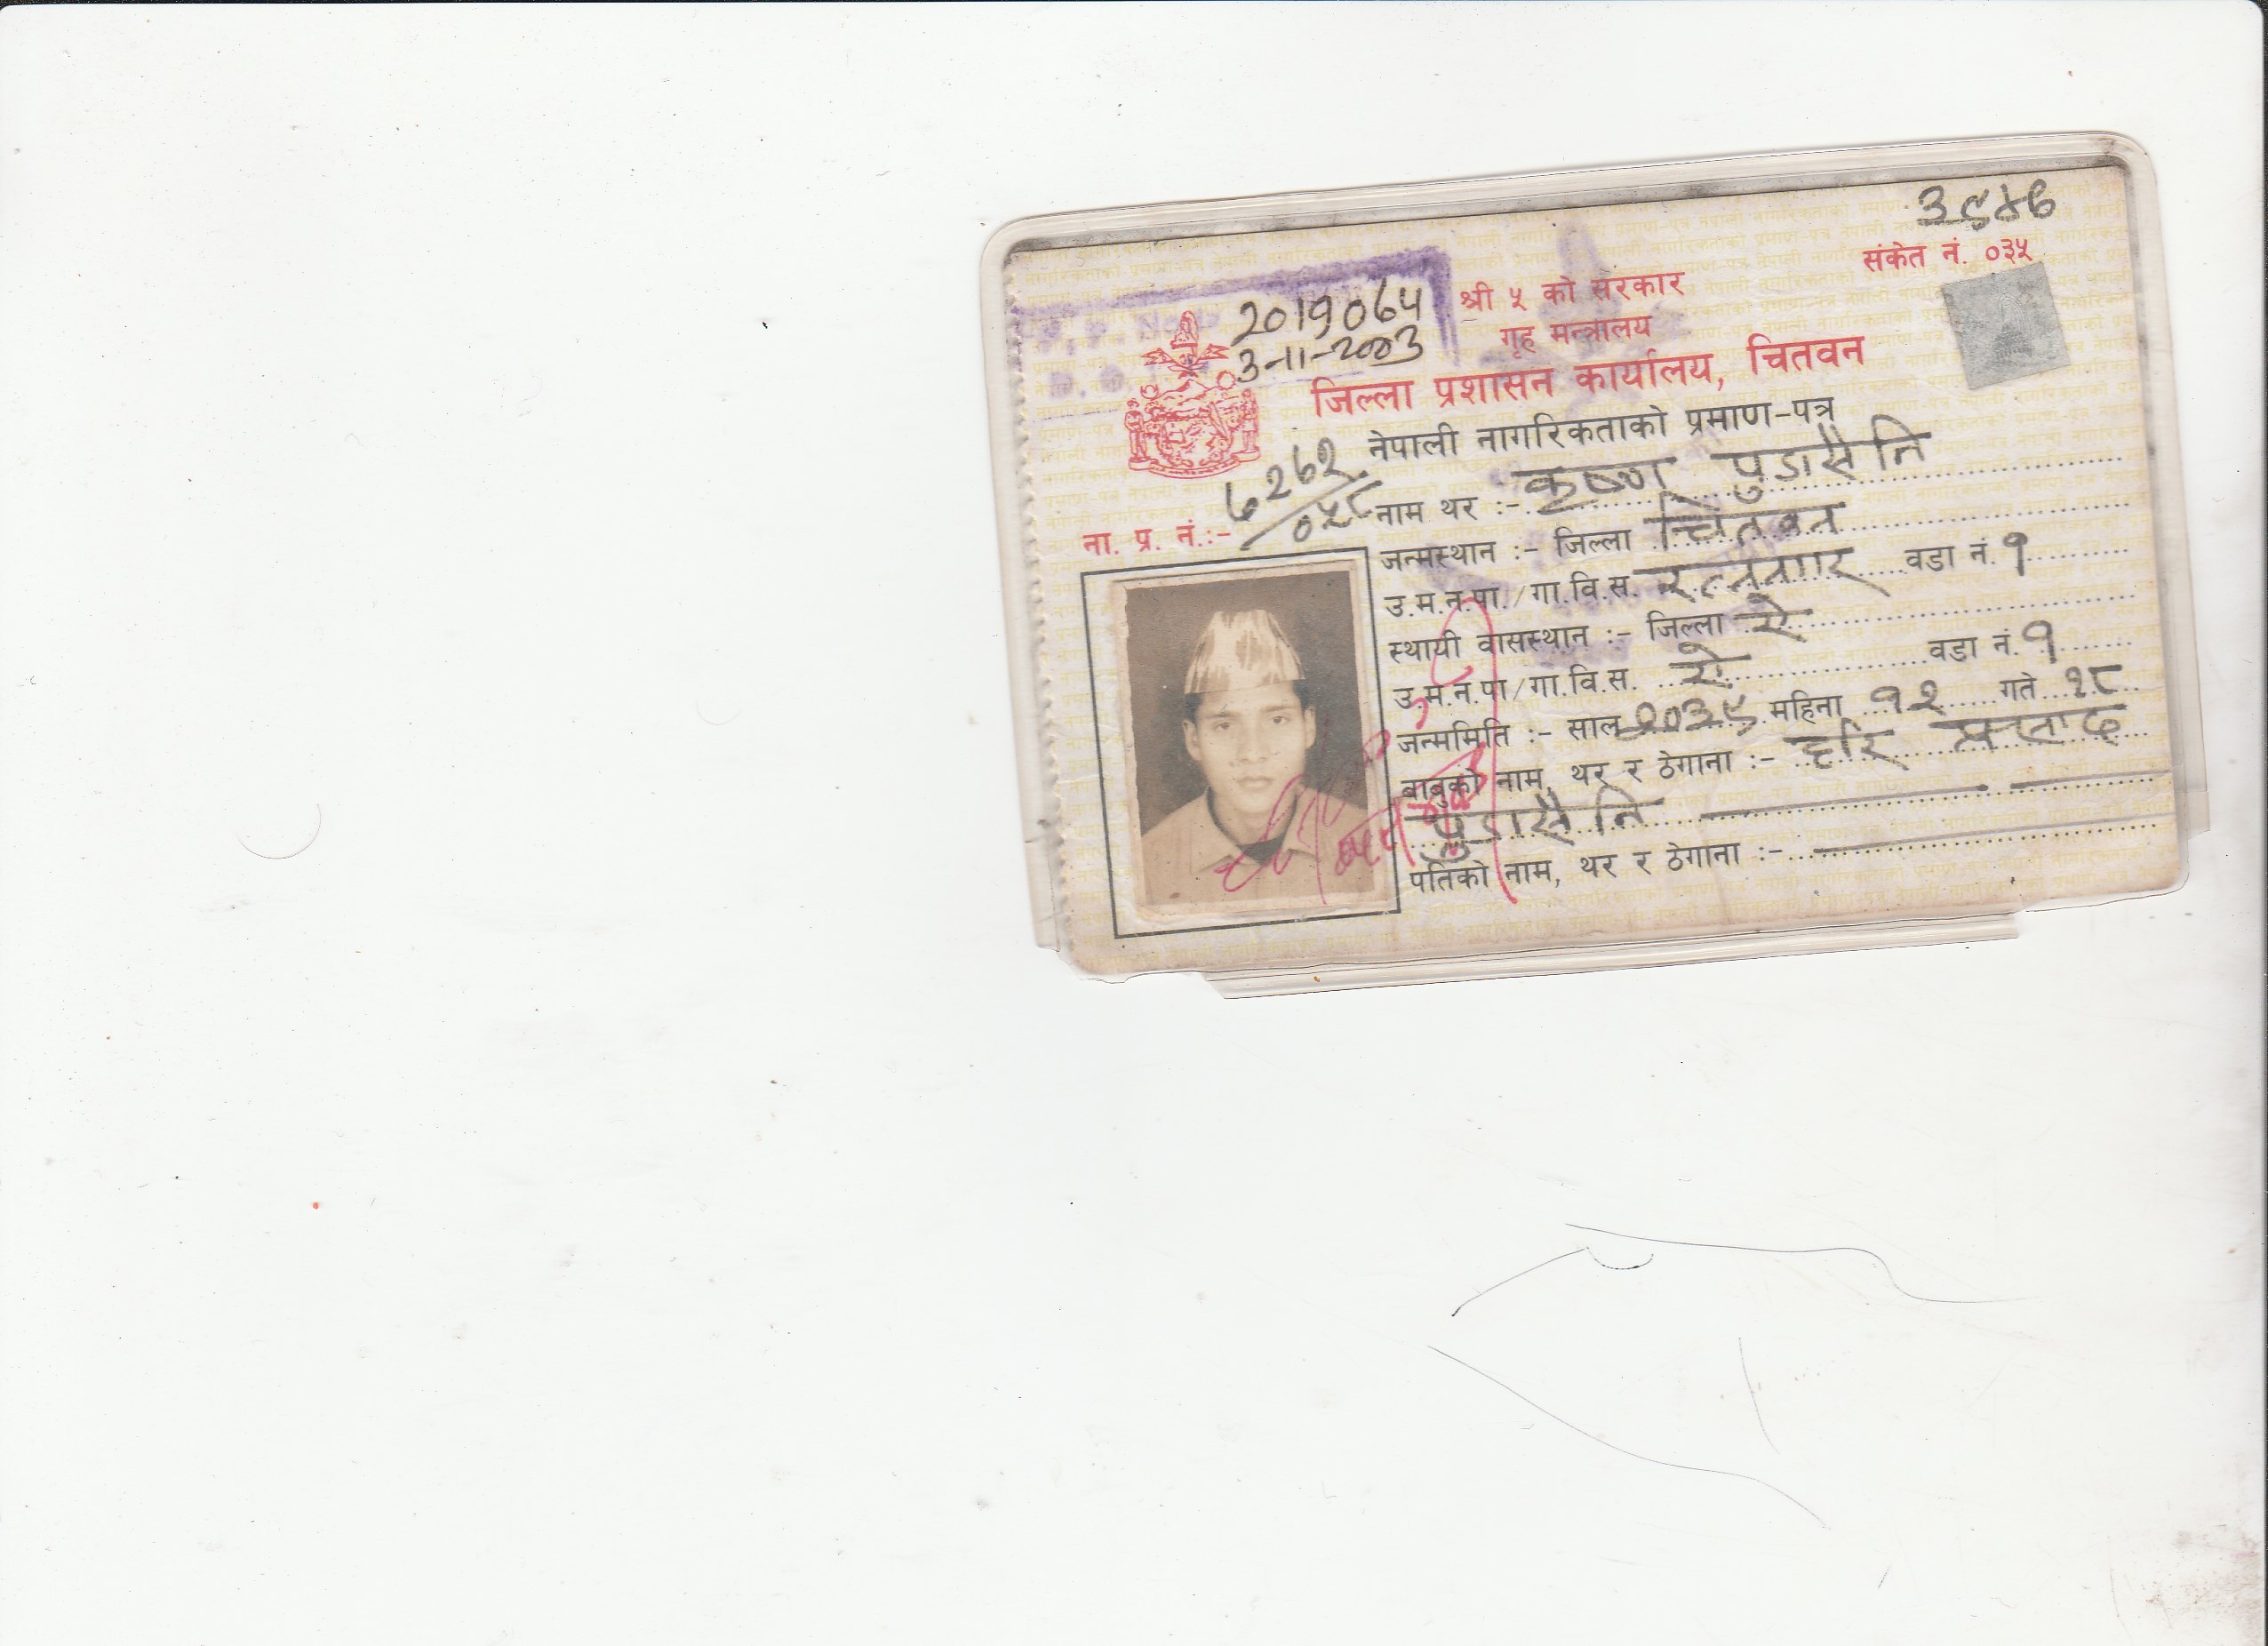 ३९४७
संकेत नं. ०३५
2019064
3-11-2003
श्री ५ को सरकार
गृह मन्त्रालय
जिल्ला प्रशासन कार्यालय, चितवन
नेपाली नागरिकताको प्रमाण-पत्र
ना. प्र. नं.:- ७२६१/०५८
नाम थर :- कृष्ण पुडासैनि
जन्मस्थान :- जिल्ला चितवन
उ.म.न.पा./गा.वि.स. रत्ननगर वडा नं. १
स्थायी वासस्थान :- जिल्ला ऐ
उ.म.न.पा/गा.वि.स. ऐ वडा नं. १
जन्ममिति :- साल २०३९ महिना १२ गते १८
बाबुको नाम, थर र ठेगाना :- हरि प्रसाद
पुडासैनि
पतिको नाम, थर र ठेगाना :-